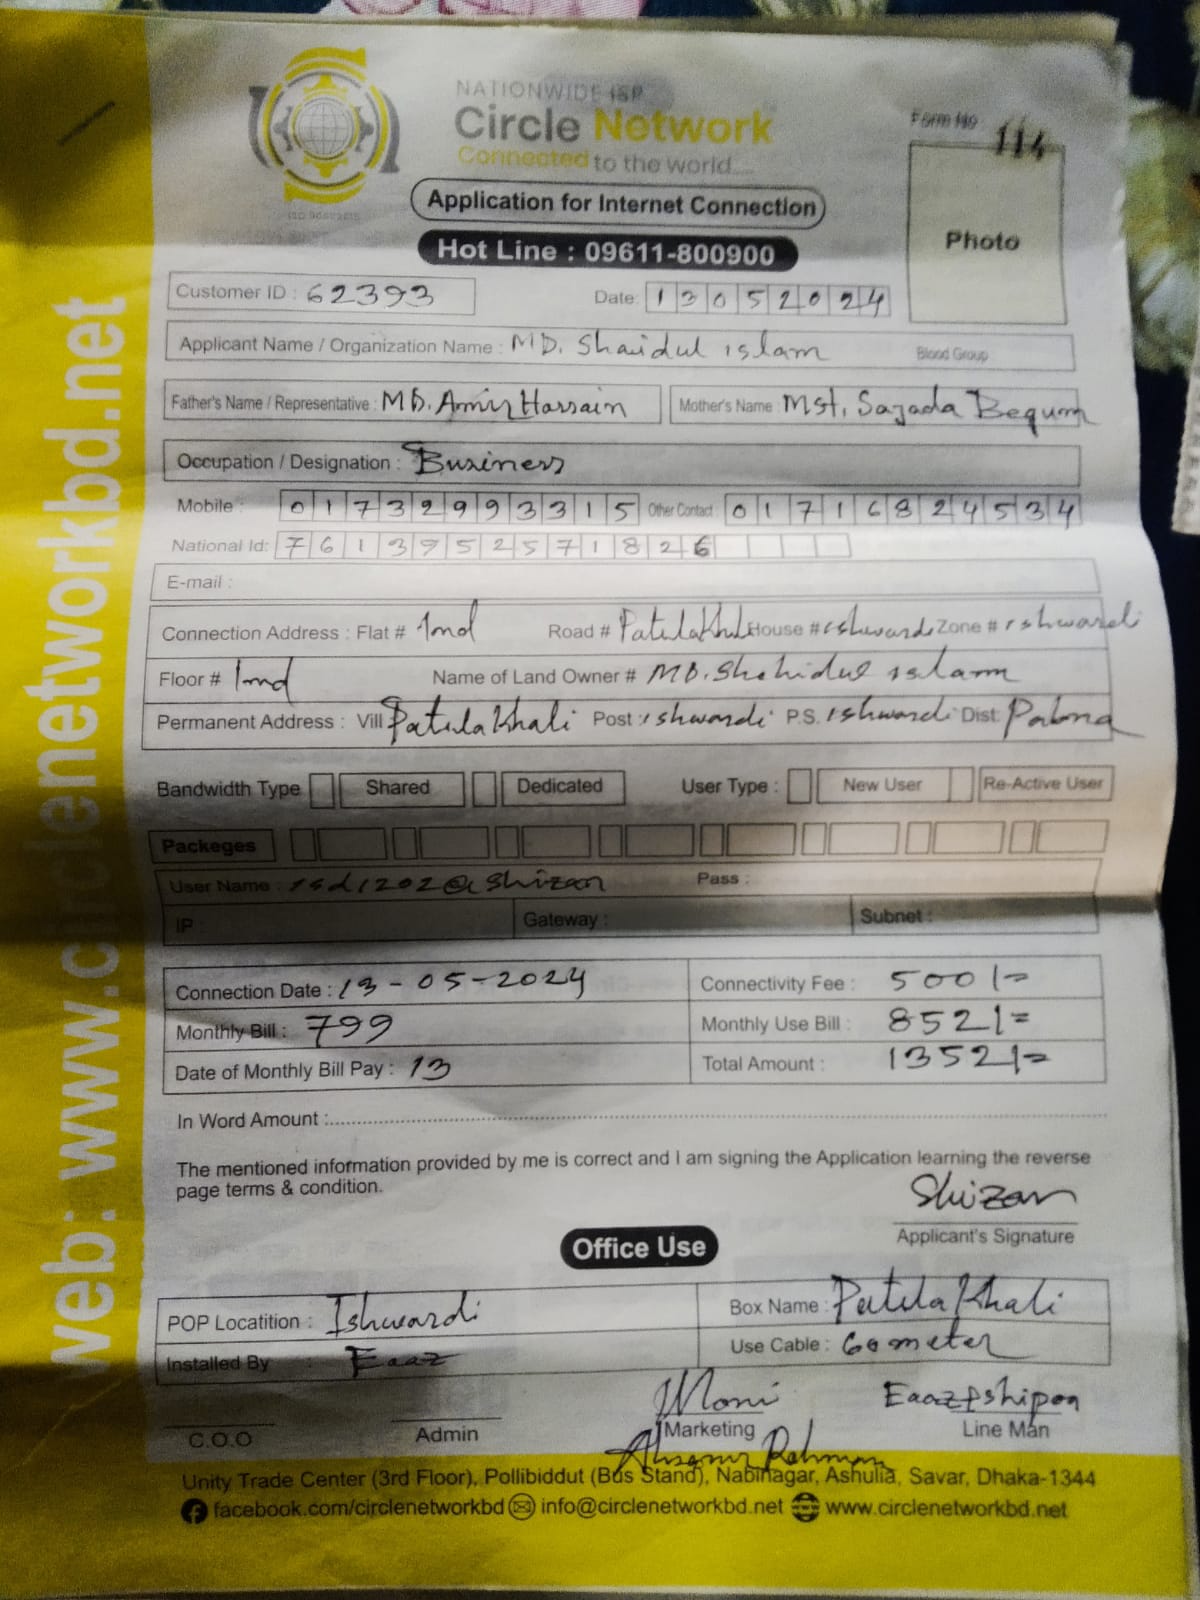 NATIONWIDE ISP
Circle Network
Connected to the world....
ISO 9001:2015
Form No 114
Photo
Application for Internet Connection
Hot Line : 09611-800900
Customer ID : 62393
Date: 13052024
Applicant Name / Organization Name : MD. Shaidul islam Blood Group
Father's Name / Representative : MD. Amir Hossain Mother's Name : Mst. Sajada Begum
Occupation / Designation : Business
Mobile : 01732993315 Other Contact : 01716824534
National Id: 7613952571826
E-mail :
Connection Address : Flat # 1nd Road # Patilakhali House # ishwardi Zone # ishwardi
Floor # 1nd Name of Land Owner # MD. Shahidul islam
Permanent Address : Vill Patilakhali Post : ishwardi P.S. ishwardi Dist: Pabna
Bandwidth Type Shared Dedicated User Type : New User Re-Active User
Packeges
User Name : isd1202@shizan Pass :
IP Gateway : Subnet :
Connection Date : 13-05-2024 Connectivity Fee : 500/=
Monthly Bill : 799 Monthly Use Bill : 852/=
Date of Monthly Bill Pay : 13 Total Amount : 1352/=
In Word Amount :
The mentioned information provided by me is correct and I am signing the Application learning the reverse
page terms & condition.
Shizan
Applicant's Signature
Office Use
POP Locatition : Ishwardi Box Name : Patilakhali
Installed By : Eaaz Use Cable : 60 meter
Moni Eaaz & shipon
C.O.O Admin Marketing Line Man
Ahsanur Rahman
Unity Trade Center (3rd Floor), Pollibiddut (Bus Stand), Nabinagar, Ashulia, Savar, Dhaka-1344
facebook.com/circlenetworkbd info@circlenetworkbd.net www.circlenetworkbd.net
web: www.circlenetworkbd.net